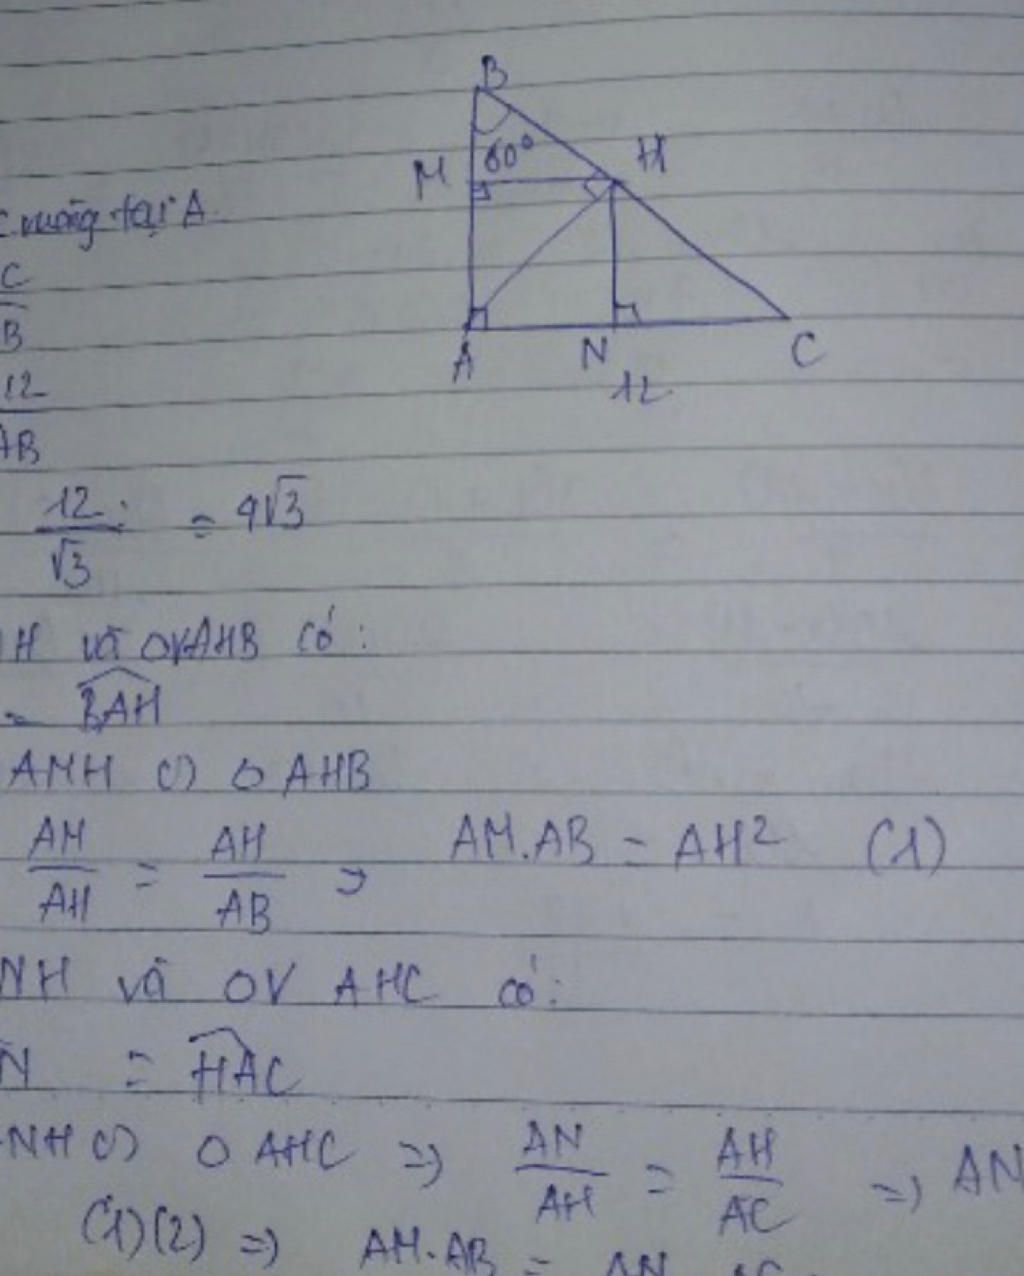 B
M 60° H
vuông tại A
C
B
A N C
12
12
AB
12 / √3 = 4√3
H và ΔV AHB có:
= BAH
AMH ∽ Δ AHB
AM / AH = AH / AB ⇒ AM.AB = AH² (1)
NH và ΔV AHC có:
N = HAC
NH ∽ Δ AHC ⇒ AN / AH = AH / AC ⇒ AN
(1)(2) ⇒ AM.AB = AN AC